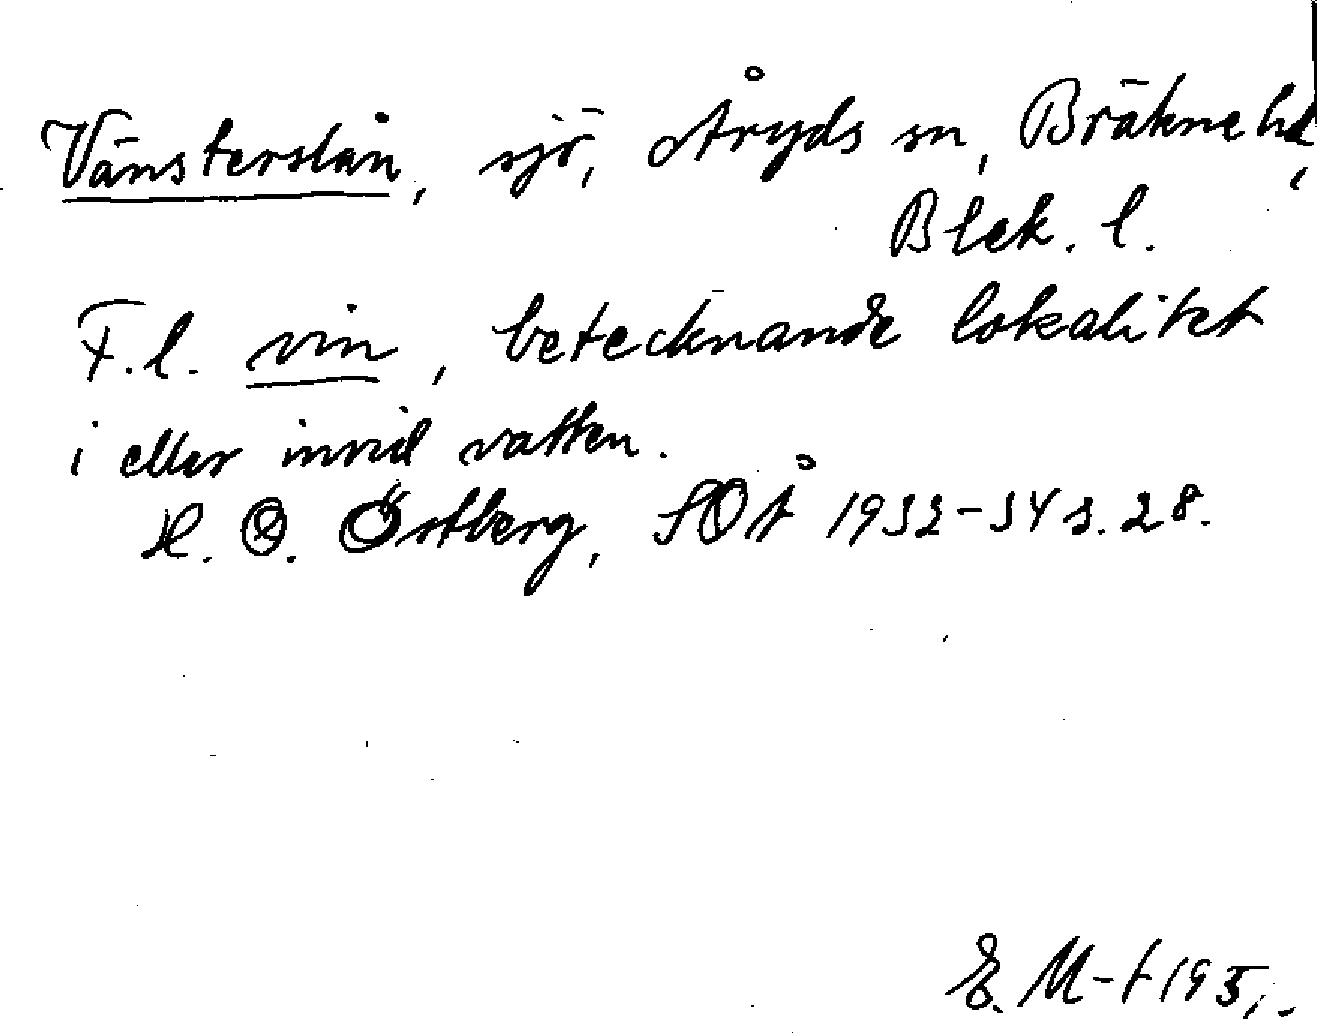 Vänsterslån, sjö, Åryds sn, Bräkne hd,
Blek. l.
F.l. vin, betecknande lokalitet
i eller invid vatten.
H. O. Östberg, SOÅ 1932-34 s. 28.
E. M-t